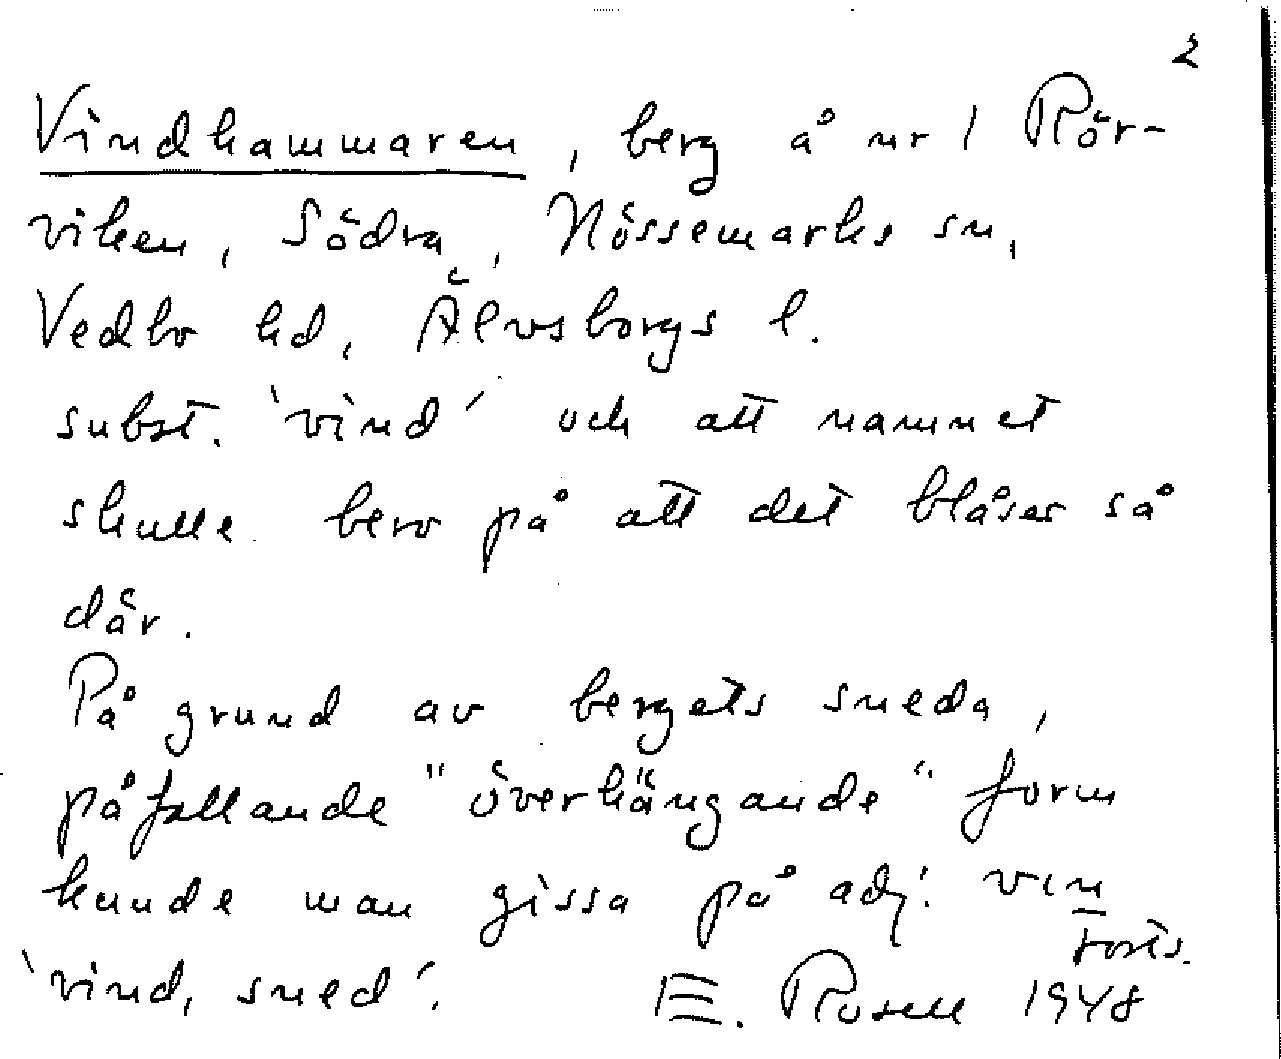 2
Vindhammaren, berg å nr 1 Rör-
viken, Södra, Nössemarks sn,
Vedbo hd, Älvsborgs l.
subst. 'vind' och att namnet
skulle bero på att det blåser så
där.
På grund av bergets sneda,
påfallande "överhängande" form
kunde man gissa på adj. vin
'vind, sned'.
Forts.
E. Rosell 1948